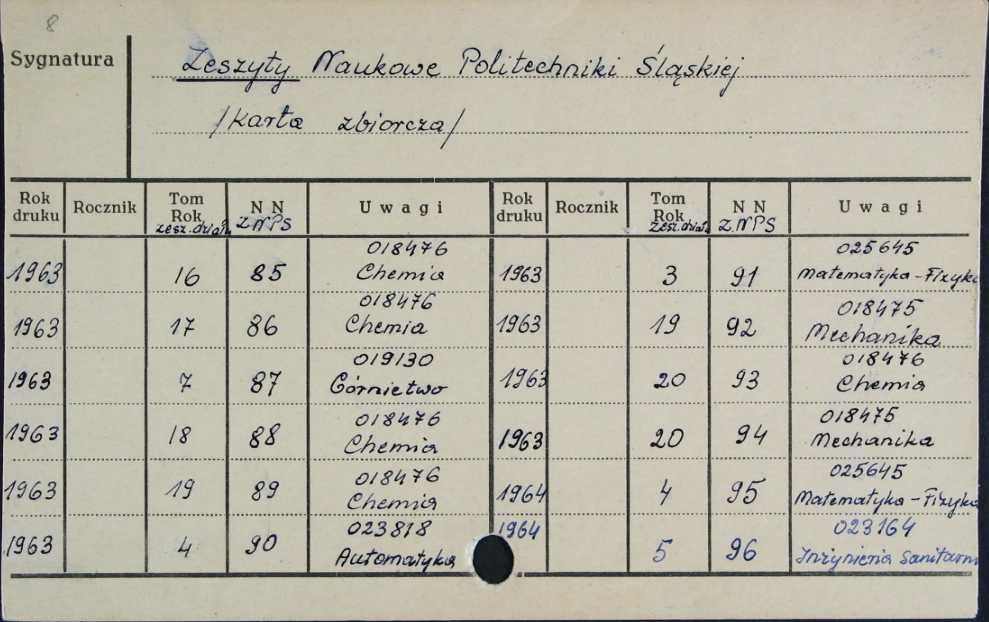 8
Sygnatura
Zeszyty Naukowe Politechniki Śląskiej
/Karta zbiorcza/
Rok druku Rocznik Tom Rok zesz. dział. N N Z.NPS Uwagi Rok druku Rocznik Tom Rok zesz. dział. N N Z.NPS Uwagi
018476 025645
1963 16 85 Chemia 1963 3 91 Matematyka - Fizyka
018476 018475
1963 17 86 Chemia 1963 19 92 Mechanika
019130 018476
1963 7 87 Górnictwo 1963 20 93 Chemia
018476 018475
1963 18 88 Chemia 1963 20 94 Mechanika
018476 025645
1963 19 89 Chemia 1964 4 95 Matematyka - Fizyka
023818 023164
1963 4 90 Automatyka 1964 5 96 Inżynieria Sanitarn